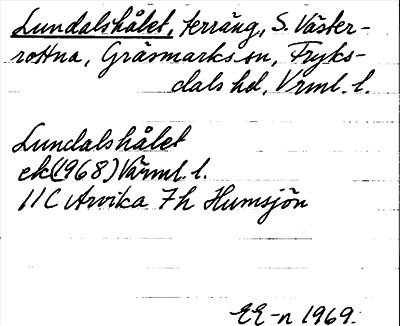 Lundalshålet, terräng, S. Väster-
rottna, Gräsmarks sn, Fryks-
dals hd, Vrml. l.
Lundalshålet
ek (1968) Värml. l.
11C Arvika 7h Humsjön
EE-n 1969.